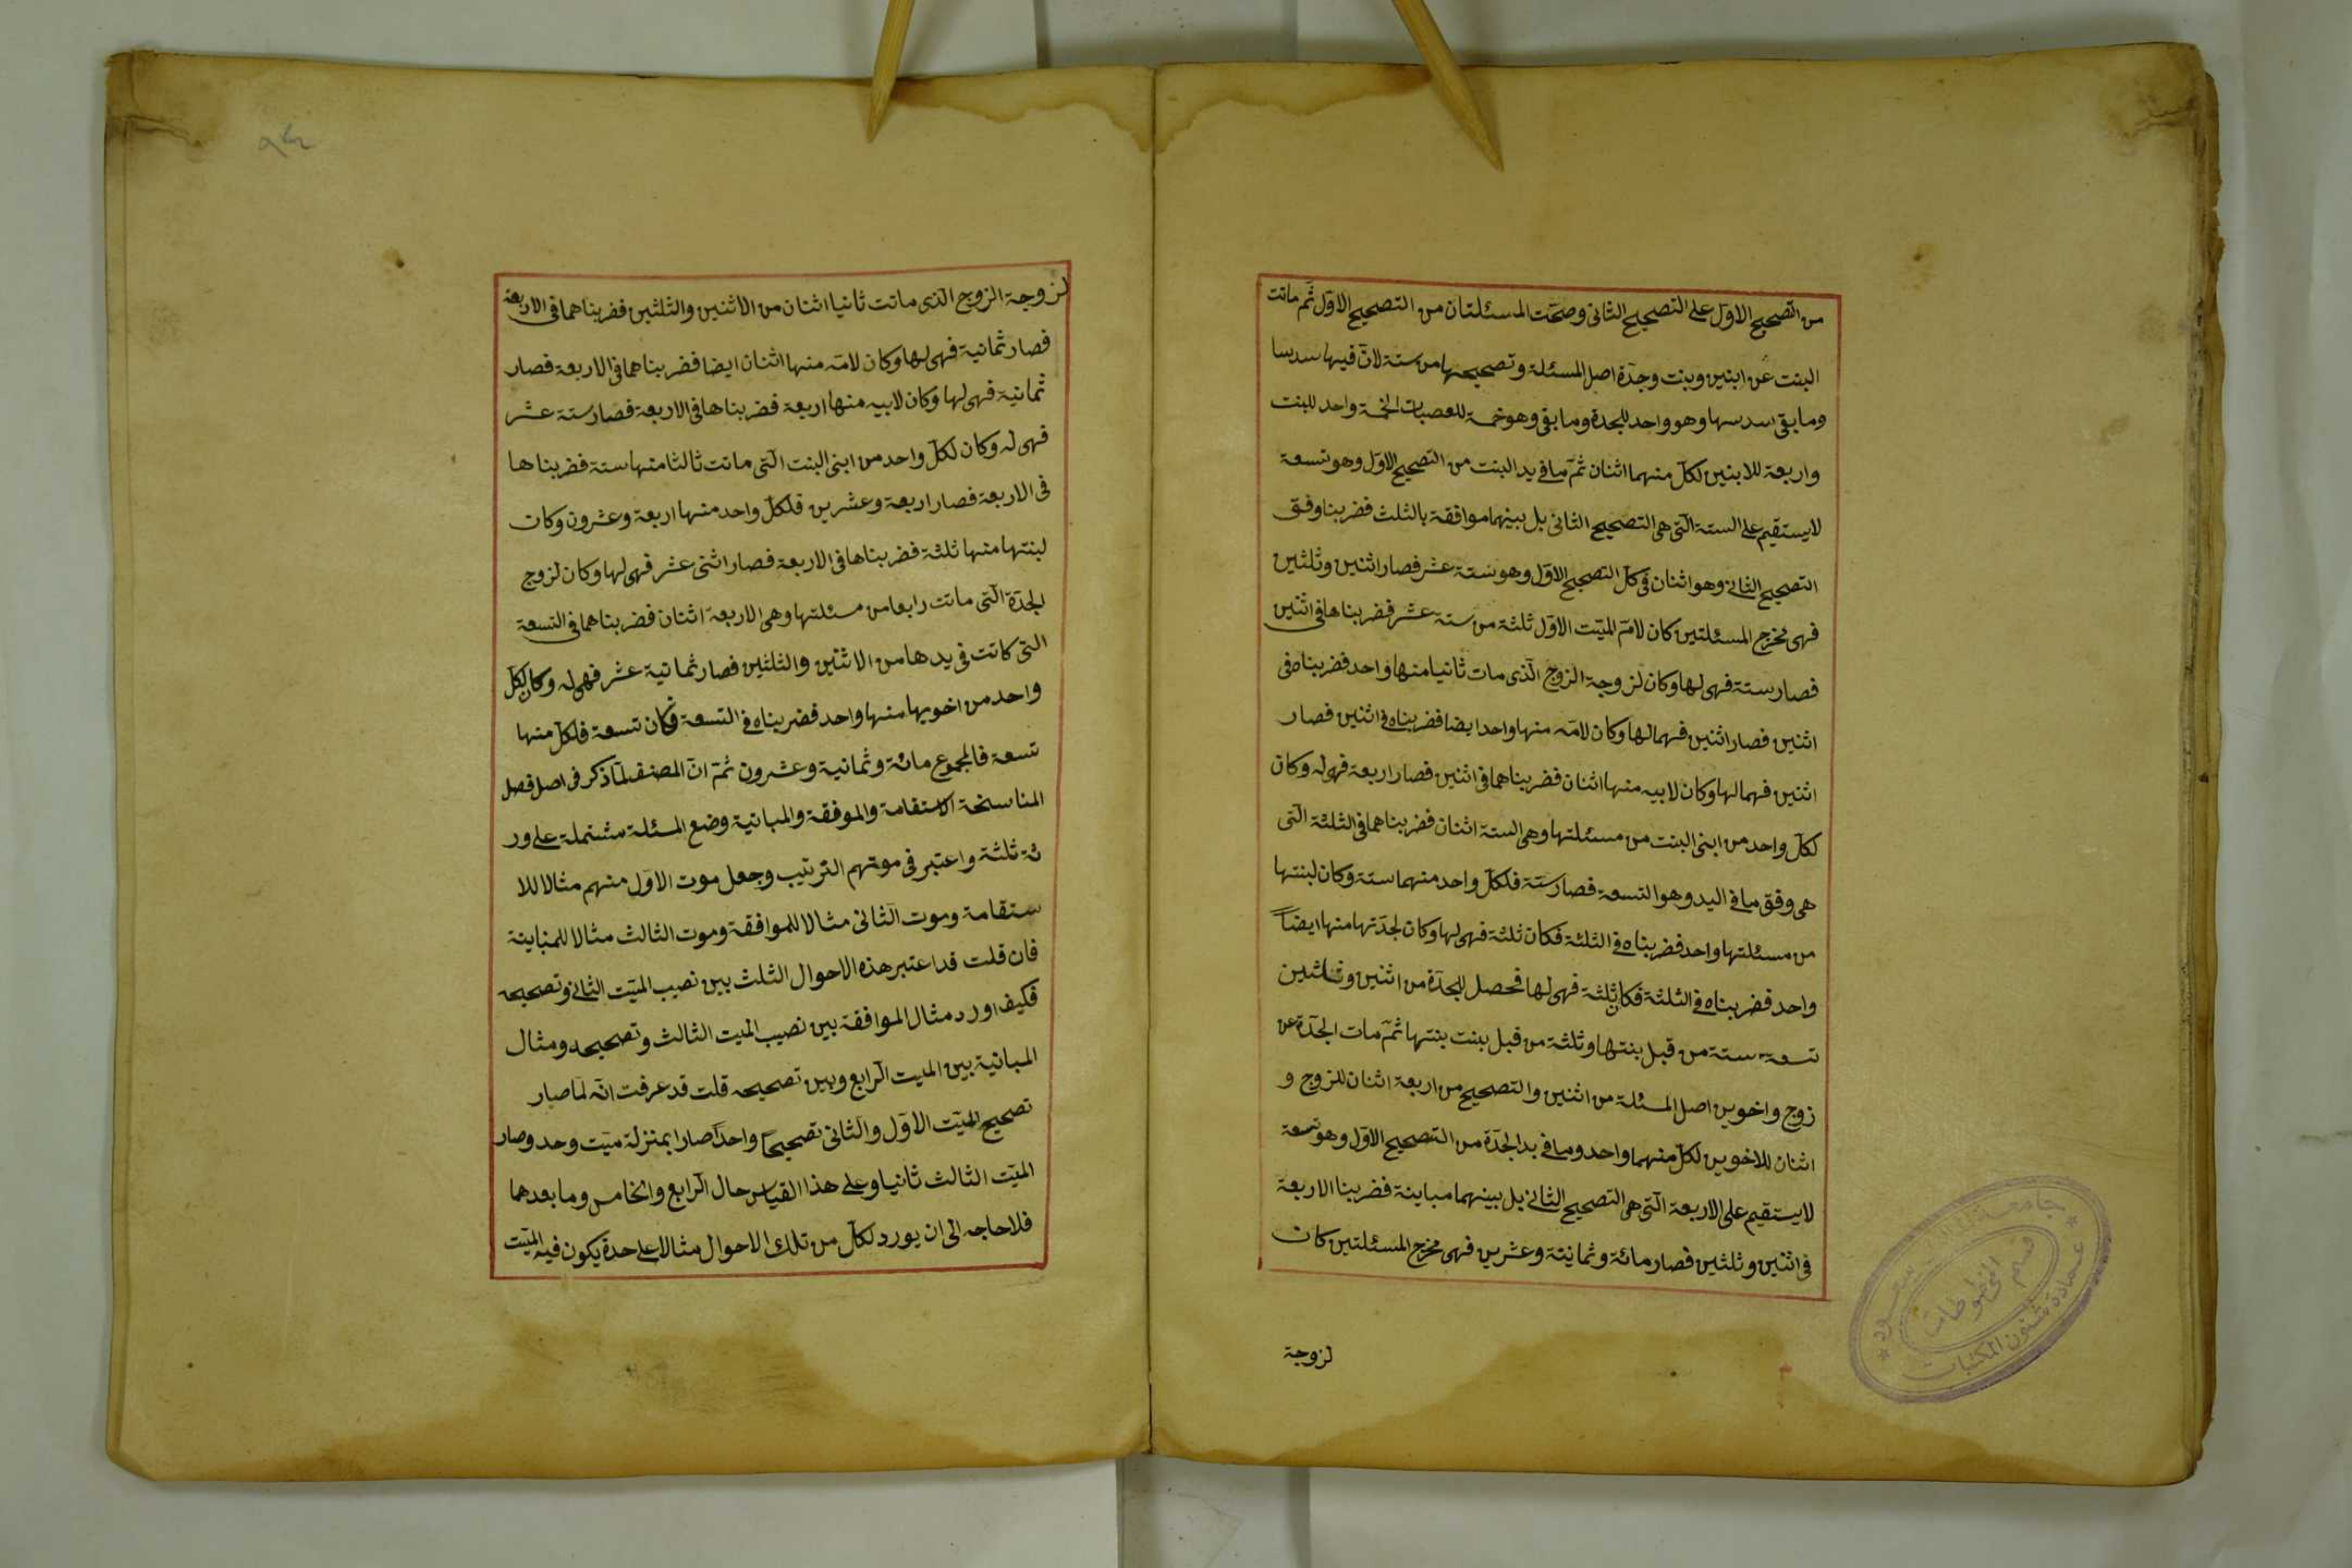 من التصحيح الاول على التصحيح الثانى وصحت المسئلتان من التصحيح الاول ثم ماتت
البنت عن ابنين وبنت وجدة اصل المسئلة وتصحيحها من ستة لان فيها سدسا
وما بقى سدسها وهو واحد للجدة وما بقى وهو خمسة للعصبات الخمسة واحد للبنت
واربعة للابنين لكل منهما اثنان ثم ما فى يد البنت من التصحيح الاول وهو تسعة
لا يستقيم على الستة التى هى التصحيح الثانى بل بينهما موافقة بالثلث فضربنا وفق
التصحيح الثانى وهو اثنان فى كل التصحيح الاول وهو ستة عشر فصار اثنين وثلثين
فهى مخرج المسئلتين كان لام الميت الاول ثلثة من ستة عشر فضربناها فى اثنين
فصار ستة فهى لها وكان لزوجة الزوج الذى مات ثانيا منها واحد فضربناه فى
اثنين فصار اثنين فهما لها وكان لامه منها واحد ايضا فضربناه فى اثنين فصار
اثنين فهما لها وكان لابيه منها اثنان فضربناهما فى اثنين فصار اربعة فهى له وكان
لكل واحد من ابنى البنت من مسئلتها وهى الستة اثنان فضربناهما فى الثلثة التى
هى وفق ما فى اليد وهو التسعة فصار ستة فلكل واحد منهما ستة وكان لبنتها
من مسئلتها واحد فضربناه فى الثلثة فكان ثلثة فهى لها وكان لجدتها منها ايضاً
واحد فضربناه فى الثلثة فكان ثلثة فهى لها فحصل للجدة من اثنين وثلثين
تسعة ستة من قبل بنتها وثلثة من قبل بنت بنتها ثم مات الجدة عن
زوج واخوين اصل المسئلة من اثنين والتصحيح من اربعة اثنان للزوج و
اثنان للاخوين لكل منهما واحد وما فى يد الجدة من التصحيح الاول وهو تسعة
لا يستقيم على الاربعة التى هى التصحيح الثانى بل بينهما مباينة فضربنا الاربعة
فى اثنين وثلثين فصار مائة وثمانية وعشرين فهى مخرج المسئلتين كان
لزوجة
جامعة سعود
عمادة شئون المكتبات
قسم المخطوطات
لزوجة الزوج الذى ماتت ثانيا اثنان من الاثنين والثلثين فضربناهما فى الاربعة
فصار ثمانية فهى لها وكان لامه منها اثنان ايضا فضربناهما فى الاربعة فصار
ثمانية فهى لها وكان لابيه منها اربعة فضربناها فى الاربعة فصار ستة عشر
فهى له وكان لكل واحد من ابنى البنت التى ماتت ثالثا منها ستة فضربناها
فى الاربعة فصار اربعة وعشرين فلكل واحد منها اربعة وعشرون وكان
لبنتها منها ثلثة فضربناها فى الاربعة فصار اثنى عشر فهى لها وكان لزوج
الجدة التى ماتت رابعا من مسئلتها وهى الاربعة اثنان فضربناهما فى التسعة
التى كانت فى يدها من الاثنين والثلثين فصار ثمانية عشر فهى له وكان لكل
واحد من اخويها منها واحد فضربناه فى التسعة فكان تسعة فلكل منها
تسعة فالمجموع مائة وثمانية وعشرون ثم ان المصنف لما ذكر فى اصل فصل
المناسخة الاستقامة والموفقة والمبانية وضع المسئلة مشتملة على ور
ثة ثلثة واعتبر فى موتهم الترتيب وجعل موت الاول منهم مثالا للا
ستقامة وموت الثانى مثالا للموافقة وموت الثالث مثالا للمباينة
فان قلت قد اعتبر هذه الاحوال الثلث بين نصيب الميت الثانى وتصحيحه
فكيف اورد مثال الموافقة بين نصيب الميت الثالث وتصحيحه ومثال
المبانية بين الميت الرابع وبين تصحيحه قلت قد عرفت انه لما صار
تصحيح الميت الاول والثانى تصحيحاً واحداً صارا بمنزلة ميت وحد وصار
الميت الثالث ثانيا وعلى هذا القياس حال الرابع والخامس وما بعدهما
فلا حاجه الى ان يورد لكل من تلك الاحوال مثالا على حدة يكون فيه الميت